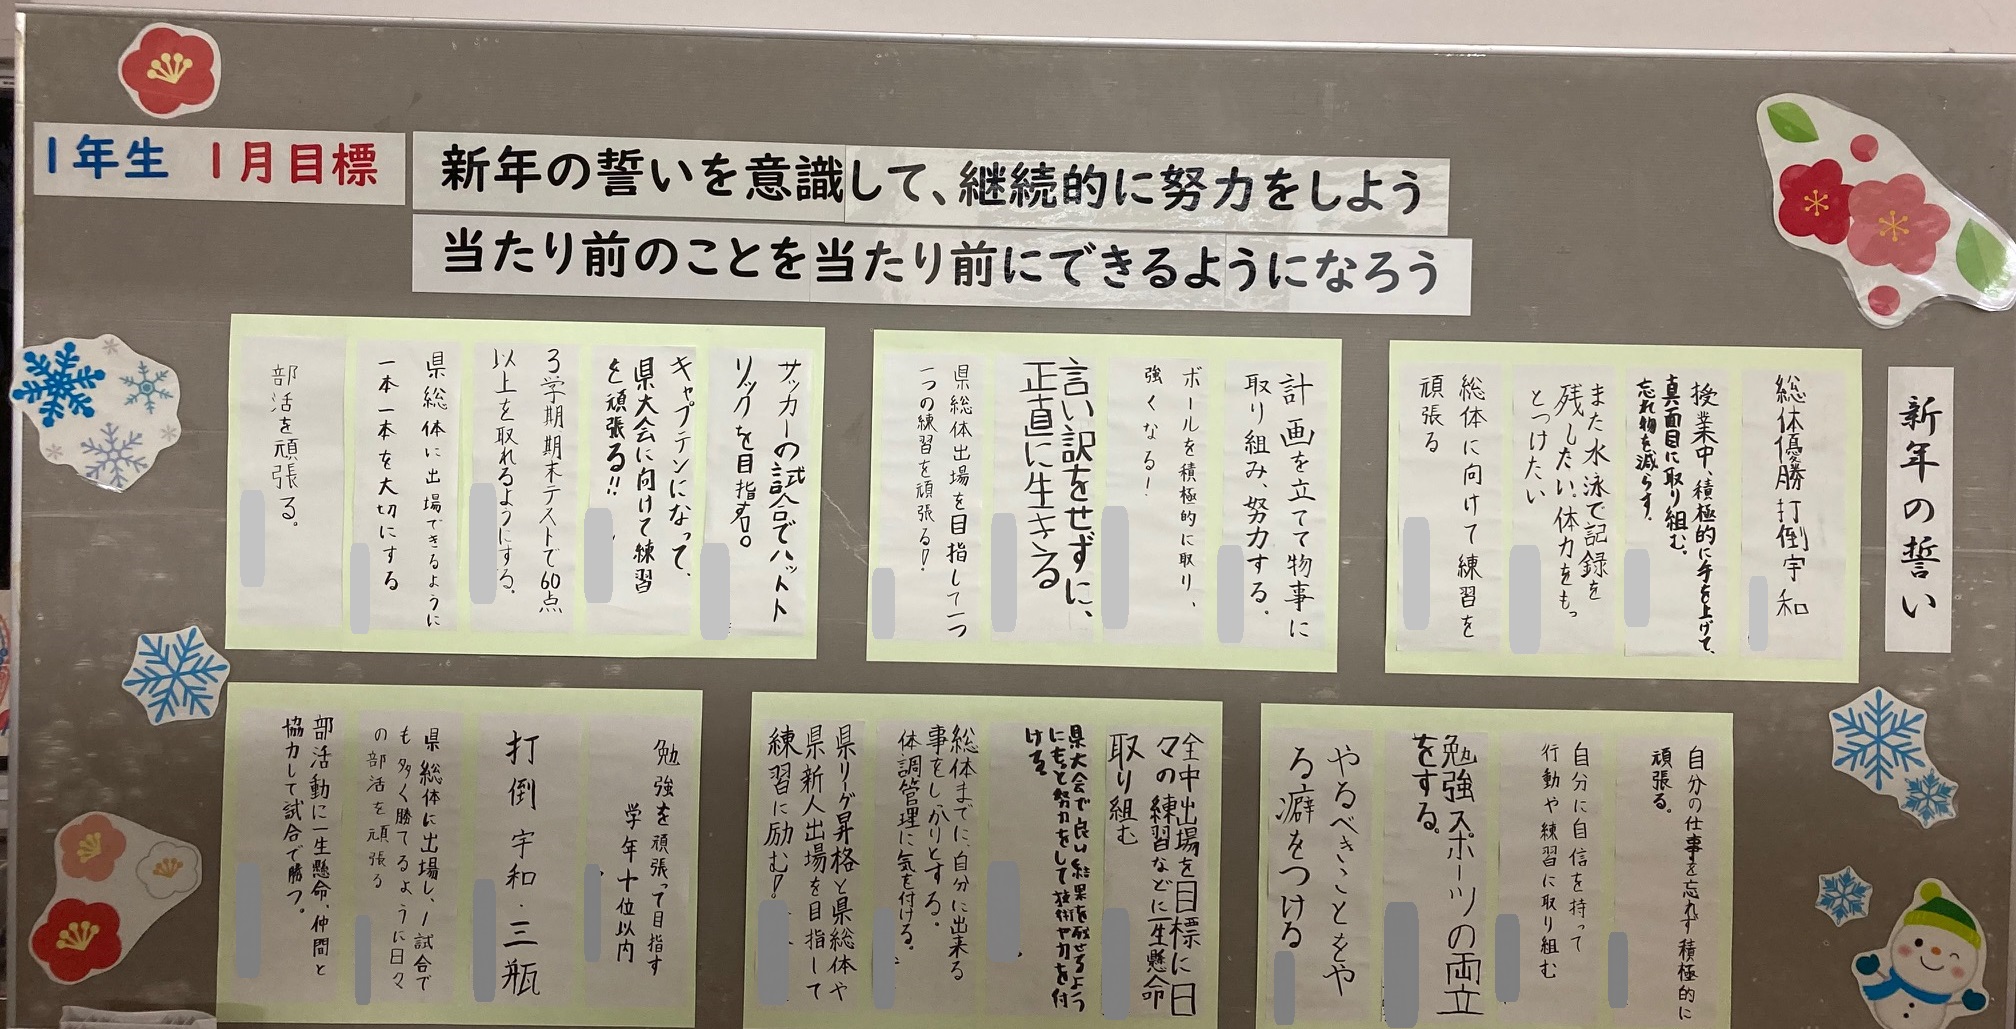 1年生 1月目標
新年の誓いを意識して、継続的に努力をしよう
当たり前のことを当たり前にできるようになろう
新年の誓い
総体優勝打倒宇和
授業中、積極的に手を上げて、
真面目に取り組む。
忘れ物を減らす。
また水泳で記録を
残したい。体力をもっ
とつけたい
総体に向けて練習を
頑張る
計画を立てて物事に
取り組み、努力する。
ボールを積極的に取り、
強くなる!
言い訳をせずに、
正直に生きる
県総体出場を目指して一つ
一つの練習を頑張る!!
サッカーの試合でハットト
リックを目指す。
キャプテンになって、
県大会に向けて練習
を頑張る!!
3学期期末テストで60点
以上を取れるようにする。
県総体に出場できるように
一本一本を大切にする
部活を頑張る。
自分の仕事を忘れず積極的に
頑張る。
自分に自信を持って
行動や練習に取り組む
勉強スポーツの両立
をする。
やるべきことをや
る癖をつける
全中出場を目標に日
々の練習などに一生懸命
取り組む
県大会で良い結果を残せるよう
にもっと努力をして技術や力を付
ける
総体までに、自分に出来る
事をしっかりとする。
体調管理に気を付ける。
県リーグ昇格と県総体や
県新人出場を目指して
練習に励む!!
勉強を頑張って目指す
学年十位以内
打倒宇和・三瓶
県総体に出場し、1試合で
も多く勝てるように日々
の部活を頑張る
部活動に一生懸命、仲間と
協力して試合で勝つ。